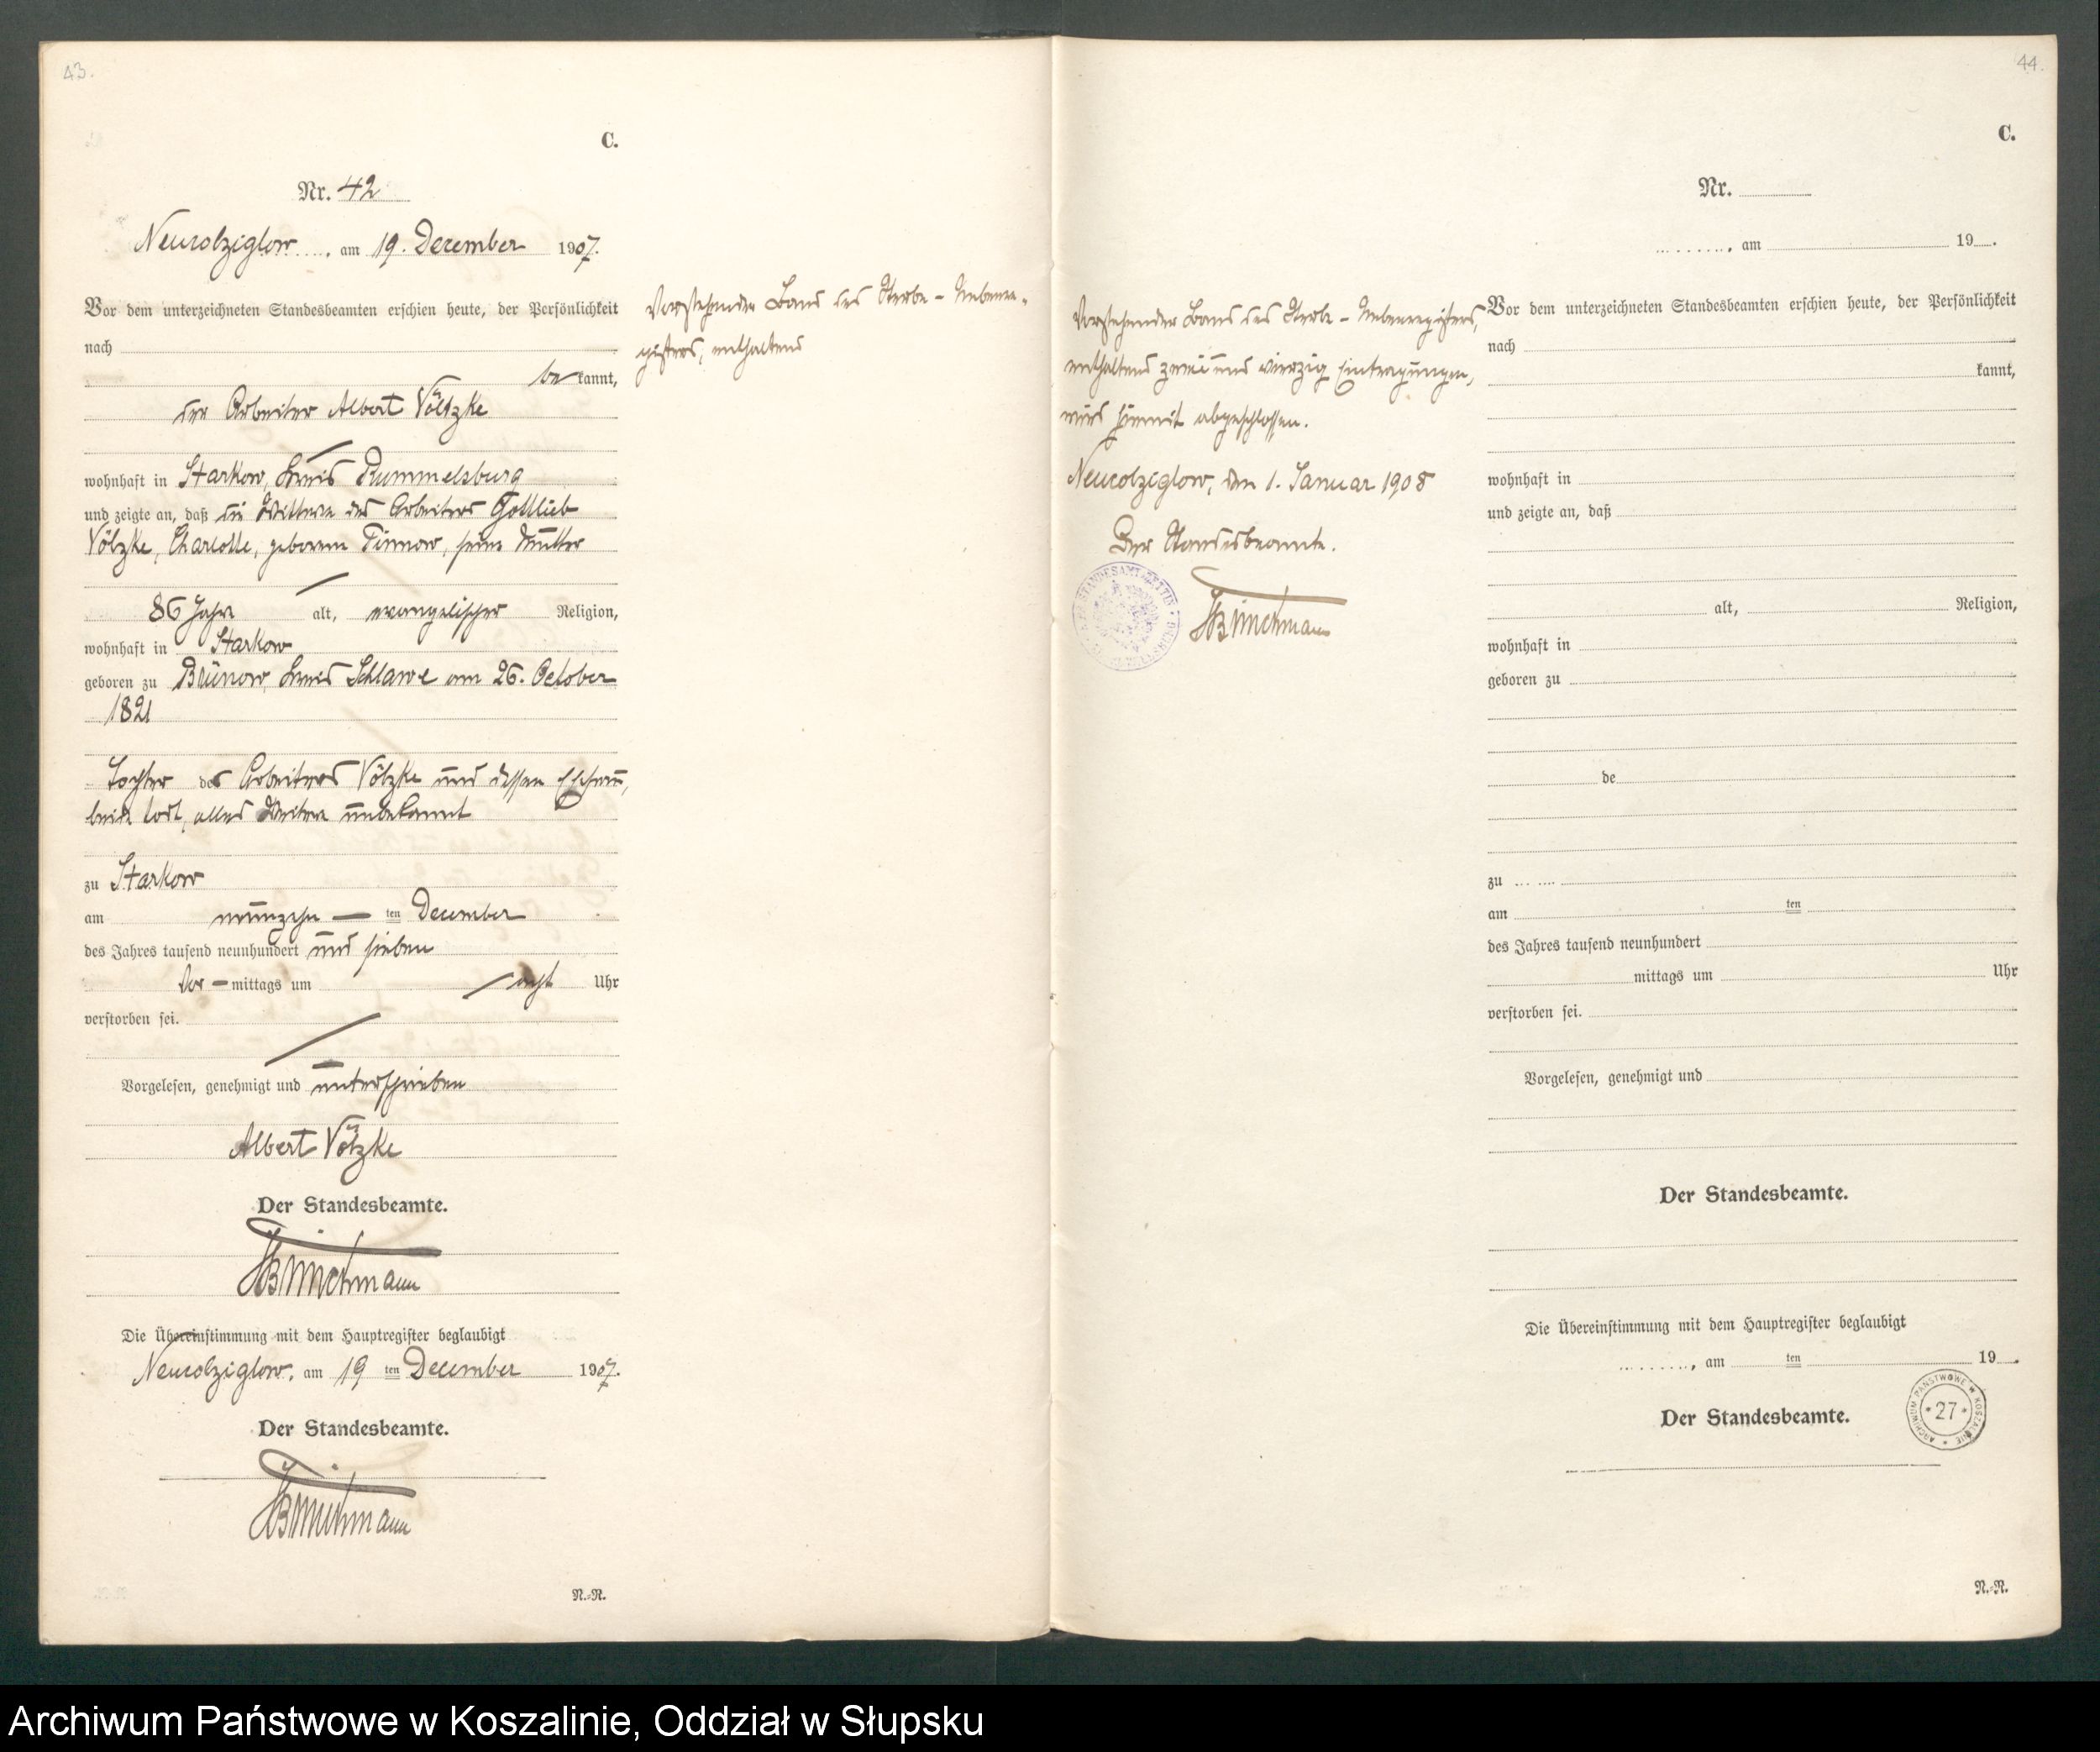 43.
C.
Nr. 42
Neucolziglow, am 19. Dezember 1907.
Vor dem unterzeichneten Standesbeamten erschien heute, der Persönlichkeit
nach
be kannt,
der Arbeiter Albert Völzke
wohnhaft in Starkow, Kreis Rummelsburg
und zeigte an, daß die Wittwe des Arbeiters Gottlieb
Völzke, Charlotte, geborene Tinnow, seine Mutter
86 Jahre alt, evangelischer Religion,
wohnhaft in Starkow
geboren zu Brünow, Kreis Schlawe am 26. October
1821
Tochter des Arbeiters Völzke und dessen Ehefrau,
beide todt, alles Weitere unbekannt
zu Starkow
am neunzehn ten December
des Jahres tausend neunhundert und sieben
Vor - mittags um acht Uhr
verstorben sei.
Vorgelesen, genehmigt und unterschrieben
Albert Völzke
Der Standesbeamte.
Die Übereinstimmung mit dem Hauptregister beglaubigt
Neucolziglow, am 19 ten December 1907.
Der Standesbeamte.
N.-R.
Vorstehender Band des Sterbe - Nebenre-
gisters, enthaltend
44.
Vorstehender Band des Sterbe - Nebenregisters,
enthaltend zwei und vierzig Eintragungen,
wird hiermit abgeschlossen.
Neucolziglow, den 1. Januar 1908
Der Standesbeamte.
C.
Nr.
, am 19 .
Vor dem unterzeichneten Standesbeamten erschien heute, der Persönlichkeit
nach
kannt,
wohnhaft in
und zeigte an, daß
alt, Religion,
wohnhaft in
geboren zu
de
zu
am ten
des Jahres tausend neunhundert
mittags um Uhr
verstorben sei.
Vorgelesen, genehmigt und
Der Standesbeamte.
Die Übereinstimmung mit dem Hauptregister beglaubigt
, am ten 19 .
ARCHIWUM PAŃSTWOWE W KOSZALINIE
* 27 *
Der Standesbeamte.
N.-R.
Archiwum Państwowe w Koszalinie, Oddział w Słupsku